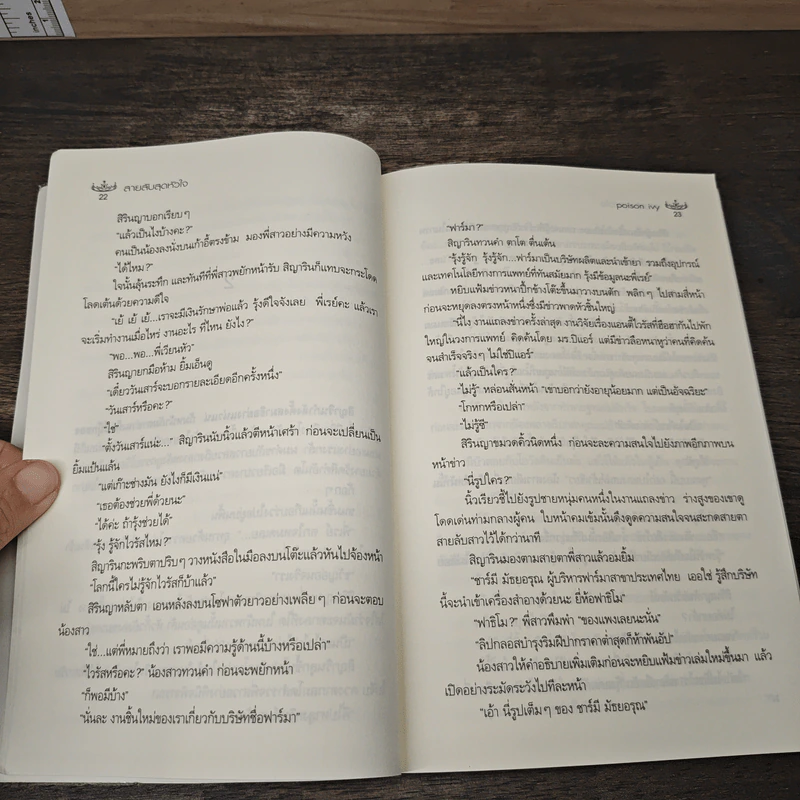 inches
สายลับสุดหัวใจ
22
สิรินญาบอกเรียบๆ
"แล้วเป็นไงบ้างคะ?"
คนเป็นน้องลงนั่งบนเก้าอี้ตรงข้าม มองพี่สาวอย่างมีความหวัง
"ได้ไหม?"
ใจนั้นลุ้นระทึก และทันทีที่พี่สาวพยักหน้ารับ สิญารินก็แทบจะกระโดด
โลดเต้นด้วยความดีใจ
"เย้ เย้ เย้...เราจะมีเงินรักษาพ่อแล้ว รุ้งดีใจจังเลย พี่เรย์คะ แล้วเรา
จะเริ่มทำงานเมื่อไหร่ งานอะไร ที่ไหน ยังไง?"
"พอ...พอ...พี่เวียนหัว"
สิรินญายกมือห้าม ยิ้มเอ็นดู
"เดี๋ยววันเสาร์จะบอกรายละเอียดอีกครั้งหนึ่ง"
"วันเสาร์หรือคะ?"
"ใช่"
"ตั้งวันเสาร์แน่ะ..." สิญารินนับนิ้วแล้วตีหน้าเศร้า ก่อนจะเปลี่ยนเป็น
ยิ้มแป้นแล้น
"แต่เก๊าะช่างมัน ยังไงก็มีเงินแน่"
"เธอต้องช่วยพี่ด้วยนะ"
"ได้ค่ะ ถ้ารุ้งช่วยได้"
"รุ้ง รู้จักไวรัสไหม?"
สิญารินกะพริบตาปริบๆ วางหนังสือในมือลงบนโต๊ะแล้วหันไปจ้องหน้า
"โลกนี้ใครไม่รู้จักไวรัสก็บ้าแล้ว"
สิรินญาหลับตา เอนหลังลงบนโซฟาตัวยาวอย่างเพลียๆ ก่อนจะตอบ
น้องสาว
"ใช่...แต่พี่หมายถึงว่า เราพอมีความรู้ด้านนี้บ้างหรือเปล่า"
"ไวรัสหรือคะ?" น้องสาวทวนคำ ก่อนจะพยักหน้า
"ก็พอมีบ้าง"
"นั่นละ งานชิ้นใหม่ของเราเกี่ยวกับบริษัทชื่อฟาร์มา"
poison ivy
23
"ฟาร์มา?"
สิญารินทวนคำ ตาโต ตื่นเต้น
"รุ้งรู้จัก รุ้งรู้จัก...ฟาร์มาเป็นบริษัทผลิตและนำเข้ายา รวมถึงอุปกรณ์
และเทคโนโลยีทางการแพทย์ที่ทันสมัยมาก รุ้งมีข้อมูลนะพี่เรย์"
หยิบแฟ้มข่าวหนาปึ้กข้างโต๊ะขึ้นมาวางบนตัก พลิกๆ ไปสามสี่หน้า
ก่อนจะหยุดลงตรงหน้าหนึ่งซึ่งมีข่าวพาดหัวชิ้นใหญ่
"นี่ไง งานแถลงข่าวครั้งล่าสุด งานวิจัยเรื่องแอนตี้ไวรัสที่ฮือฮากันไปพัก
ใหญ่ในวงการแพทย์ คิดค้นโดย มร.ปิแอร์ แต่มีข่าวลือหนาหูว่าคนที่คิดค้น
จนสำเร็จจริงๆ ไม่ใช่ปิแอร์"
"แล้วเป็นใคร?"
"ไม่รู้" หล่อนสั่นหน้า "เขาบอกว่ายังอายุน้อยมาก แต่เป็นอัจฉริยะ"
"โกหกหรือเปล่า"
"ไม่รู้ซี"
สิรินญาขมวดคิ้วนิดหนึ่ง ก่อนจะละความสนใจไปยังภาพอีกภาพบน
หน้าข่าว
"นี่รูปใคร?"
นิ้วเรียวชี้ไปยังรูปชายหนุ่มคนหนึ่งในงานแถลงข่าว ร่างสูงของเขาดู
โดดเด่นท่ามกลางผู้คน ใบหน้าคมเข้มนั้นดึงดูดความสนใจจนสะกดสายตา
สายลับสาวไว้ได้กว่านาที
สิญารินมองตามสายตาพี่สาวแล้วอมยิ้ม
"ชาร์มี มัธยอรุณ ผู้บริหารฟาร์มาสาขาประเทศไทย เออใช่ รู้สึกบริษัท
นี้จะนำเข้าเครื่องสำอางด้วยนะ ยี่ห้อฟาธิโม"
"ฟาธิโม?" พี่สาวพึมพำ "ของแพงเลยนะนั่น"
"ลิปกลอสบำรุงริมฝีปากราคาต่ำสุดก็ห้าพันอัป"
น้องสาวให้คำอธิบายเพิ่มเติมก่อนจะหยิบแฟ้มข่าวเล่มใหม่ขึ้นมา แล้ว
เปิดอย่างระมัดระวังไปทีละหน้า
"เอ้า นี่รูปเต็มๆ ของ ชาร์มี มัธยอรุณ"